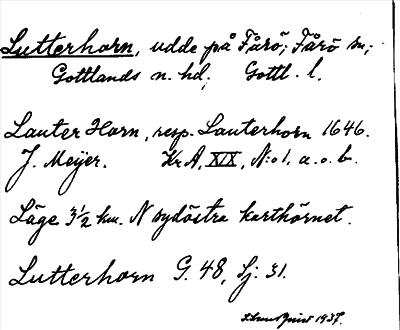 Lutterhorn, udde på Fårö; Fårö sn;
Gottlands n. hd; Gottl. l.
Lauter Horn, resp. Lauterhorn 1646.
J. Meÿer. Kr. A, XIX, N:o 1, a. o. b.
Läge 3½ km. N sydöstra karthörnet.
Lutterhorn G. 48, Sj: 31.
1937.